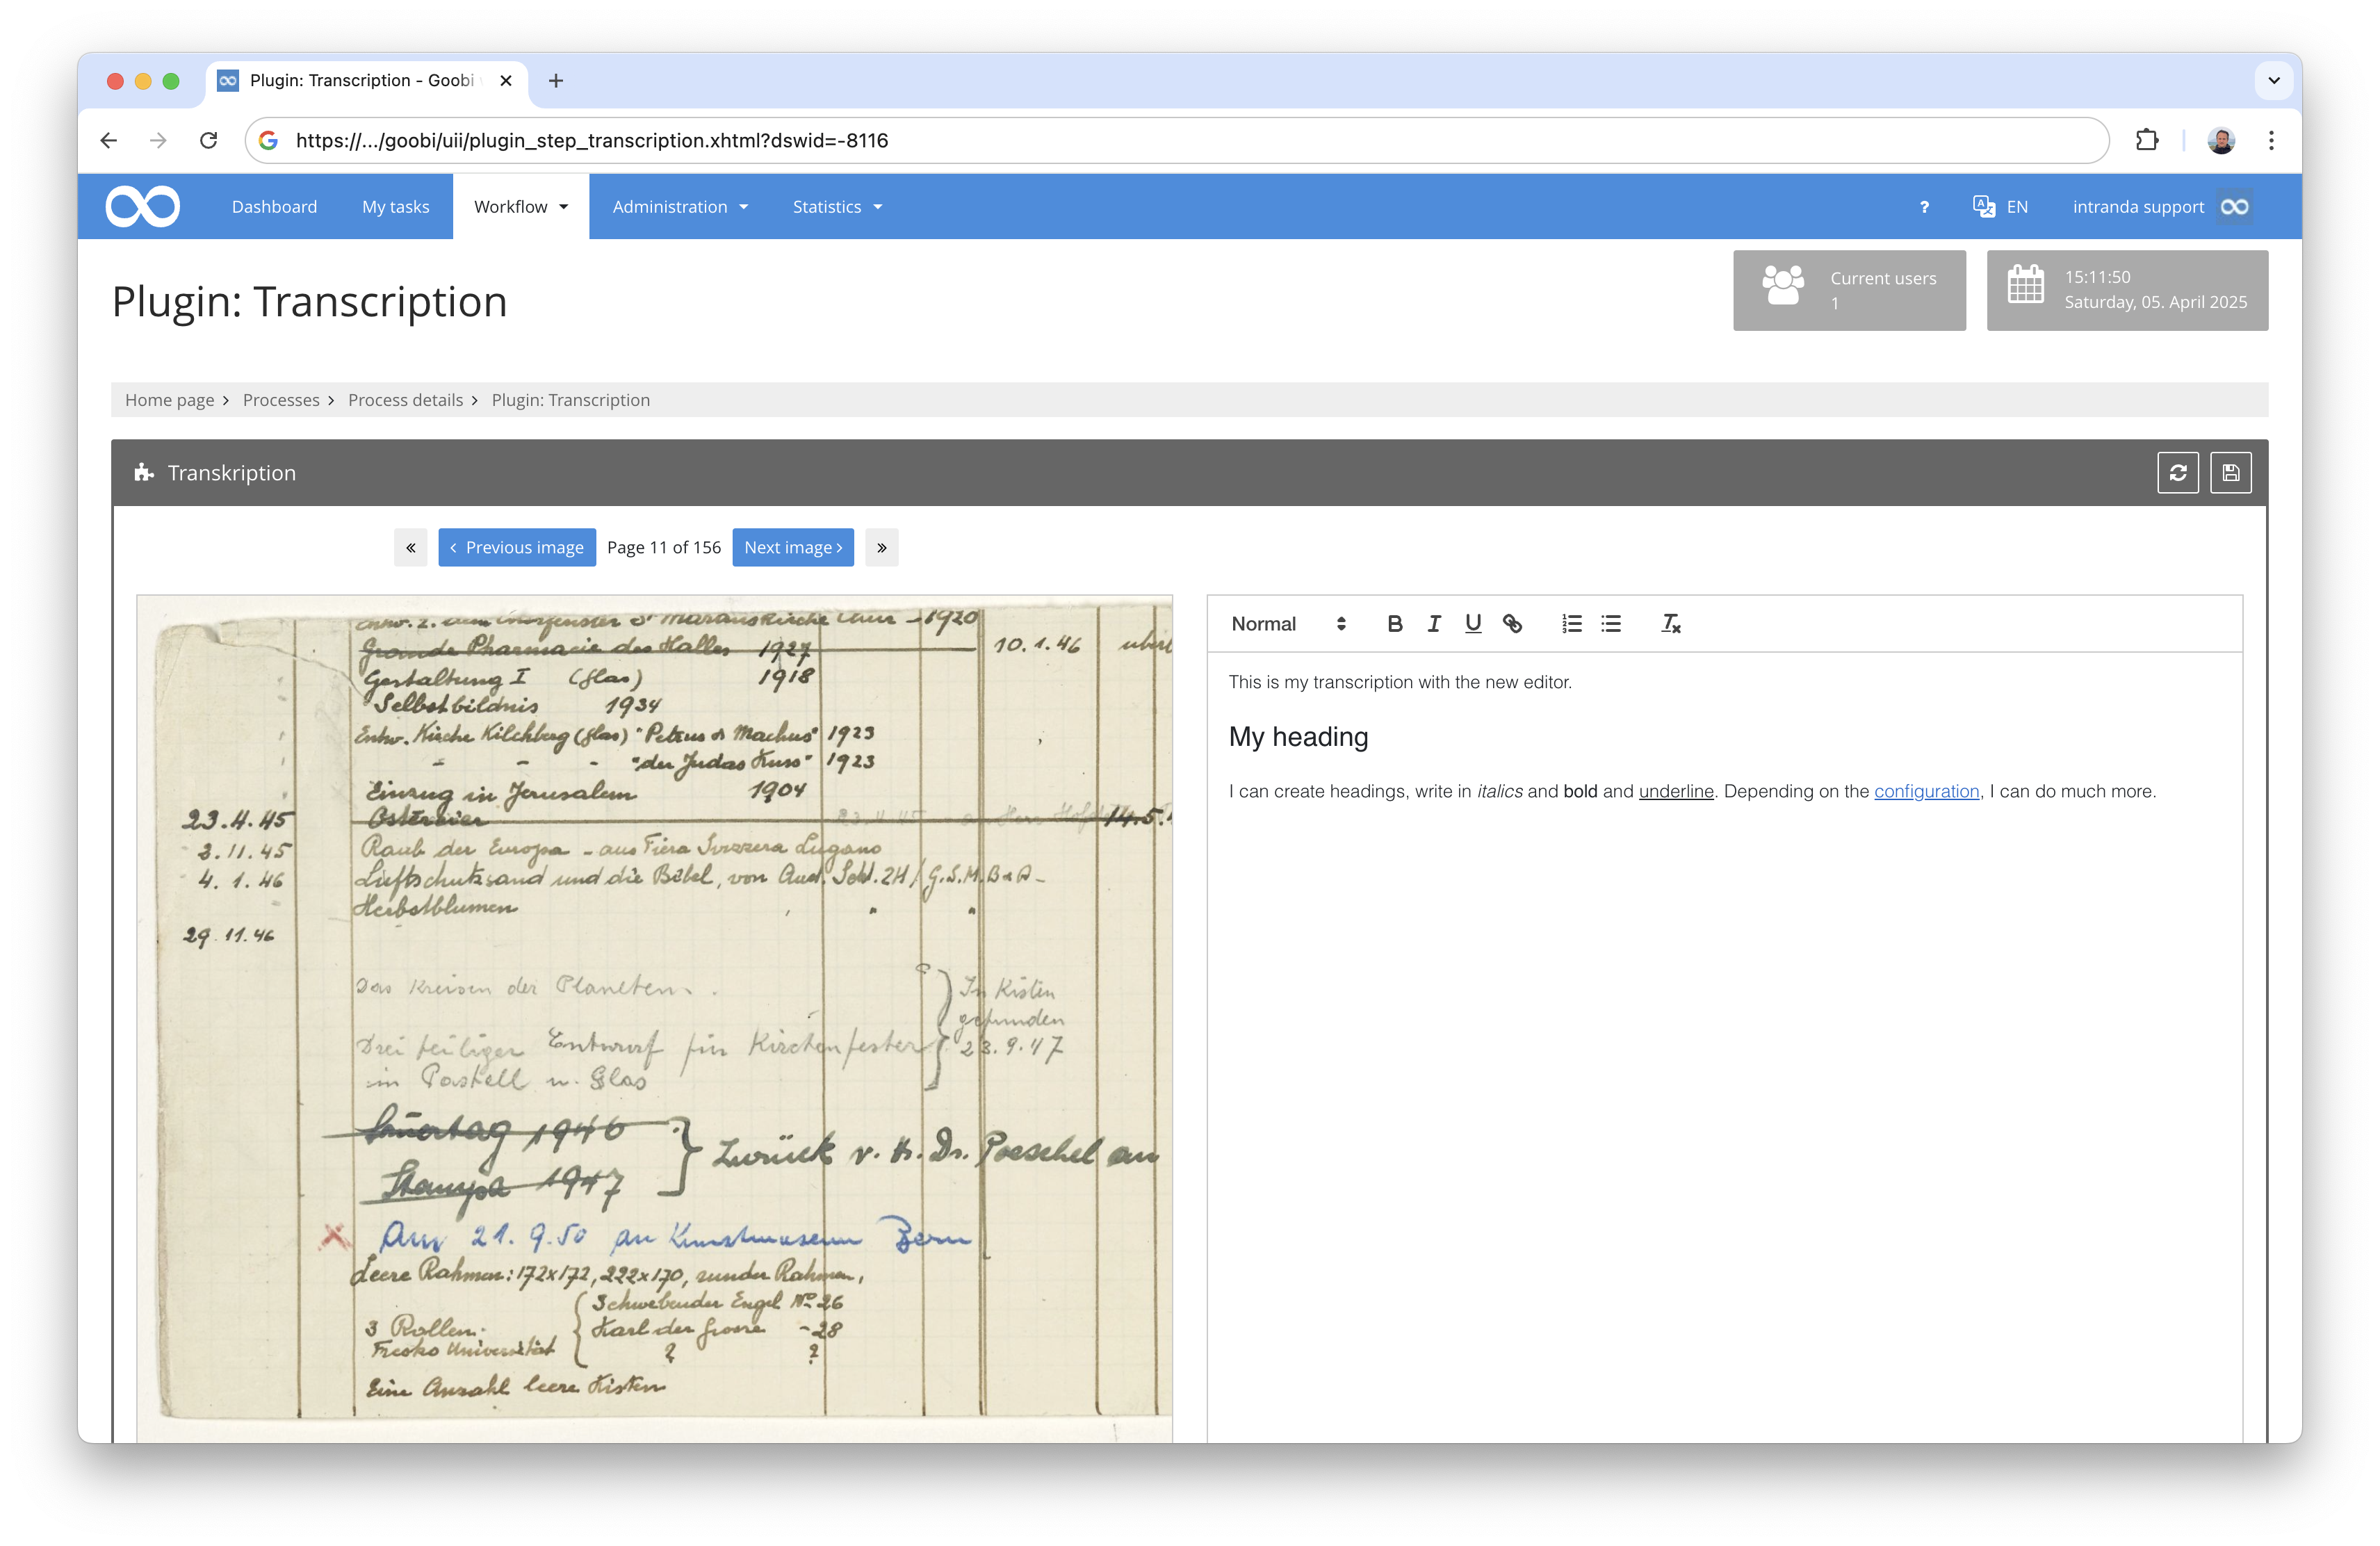 Plugin: Transcription - Goobi
https://.../goobi/uii/plugin_step_transcription.xhtml?dswid=-8116
Dashboard My tasks Workflow Administration Statistics ? EN intranda support
Plugin: Transcription
Current users
1
15:11:50
Saturday, 05. April 2025
Home page Processes Process details Plugin: Transcription
Transkription
« ‹ Previous image Page 11 of 156 Next image › »
Entw. z. dem Chorfenster St Martinskirche Chur - 1920
Grande Pharmacie des Halles 1927 10.1.46
Gestaltung I (Glas) 1918
Selbstbildnis 1934
Entw. Kirche Kilchberg (Glas) "Petrus & Machus" 1923
- - - "der Judas Kuss" 1923
Einzug in Jerusalem 1904
23.4.45 Ostereier 23.4.45 an Herr 14.5.
3.11.45 Raub der Europa - aus Fiera Svizzera Lugano
4.1.46 Luftschutzsand und die Bibel, von Ausst. 2H / G.S.M.B.&A-
Herbstblumen " "
29.11.46
Das Kreisen der Planeten.
Drei teiliger Entwurf für Kirchenfester
in Pastell u. Glas
In Kisten
gefunden
23.9.47
1946
Stampa 1947
Zurück v. H. Dr. Poeschel an
x Am 21.9.50 an Kunstmuseum Bern
Leere Rahmen: 172x172, 222x170, runder Rahmen,
Schwebender Engel No 26
3 Rollen: Karl der Grosse - 28
Fresko Universität ? ?
Eine Anzahl leere Kisten
Normal B I U
This is my transcription with the new editor.
My heading
I can create headings, write in italics and bold and underline. Depending on the configuration, I can do much more.